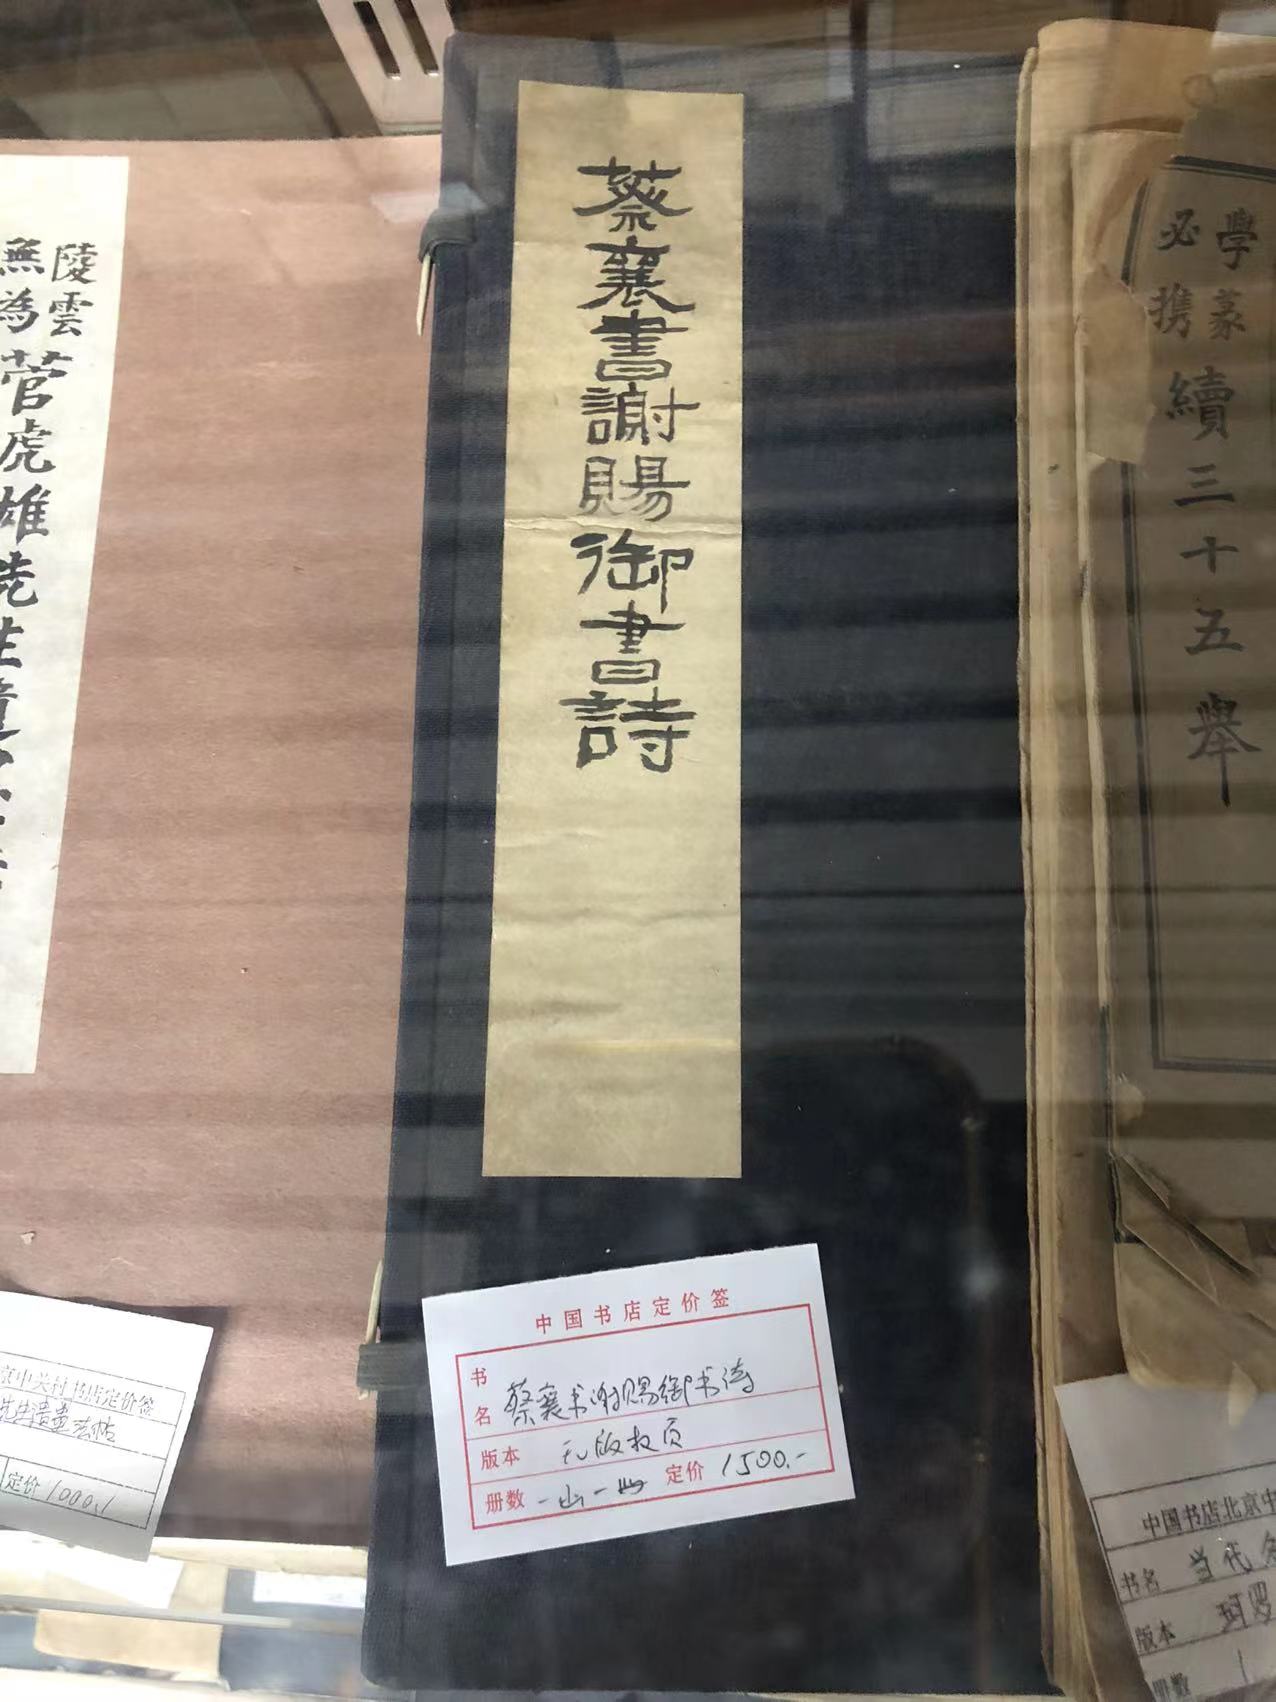 蔡襄書謝賜御書詩
陵雲
無為
菅虎雄先生
學篆
必携
續三十五舉
中国书店定价签
书名 蔡襄书谢赐御书诗
版本 无版权页
册数 一函一册 定价 1500.-
京中关村书店定价签
先生遗墨法帖
定价 1000.
中国书店北京中
书名 当代
版本 珂罗
册数 1